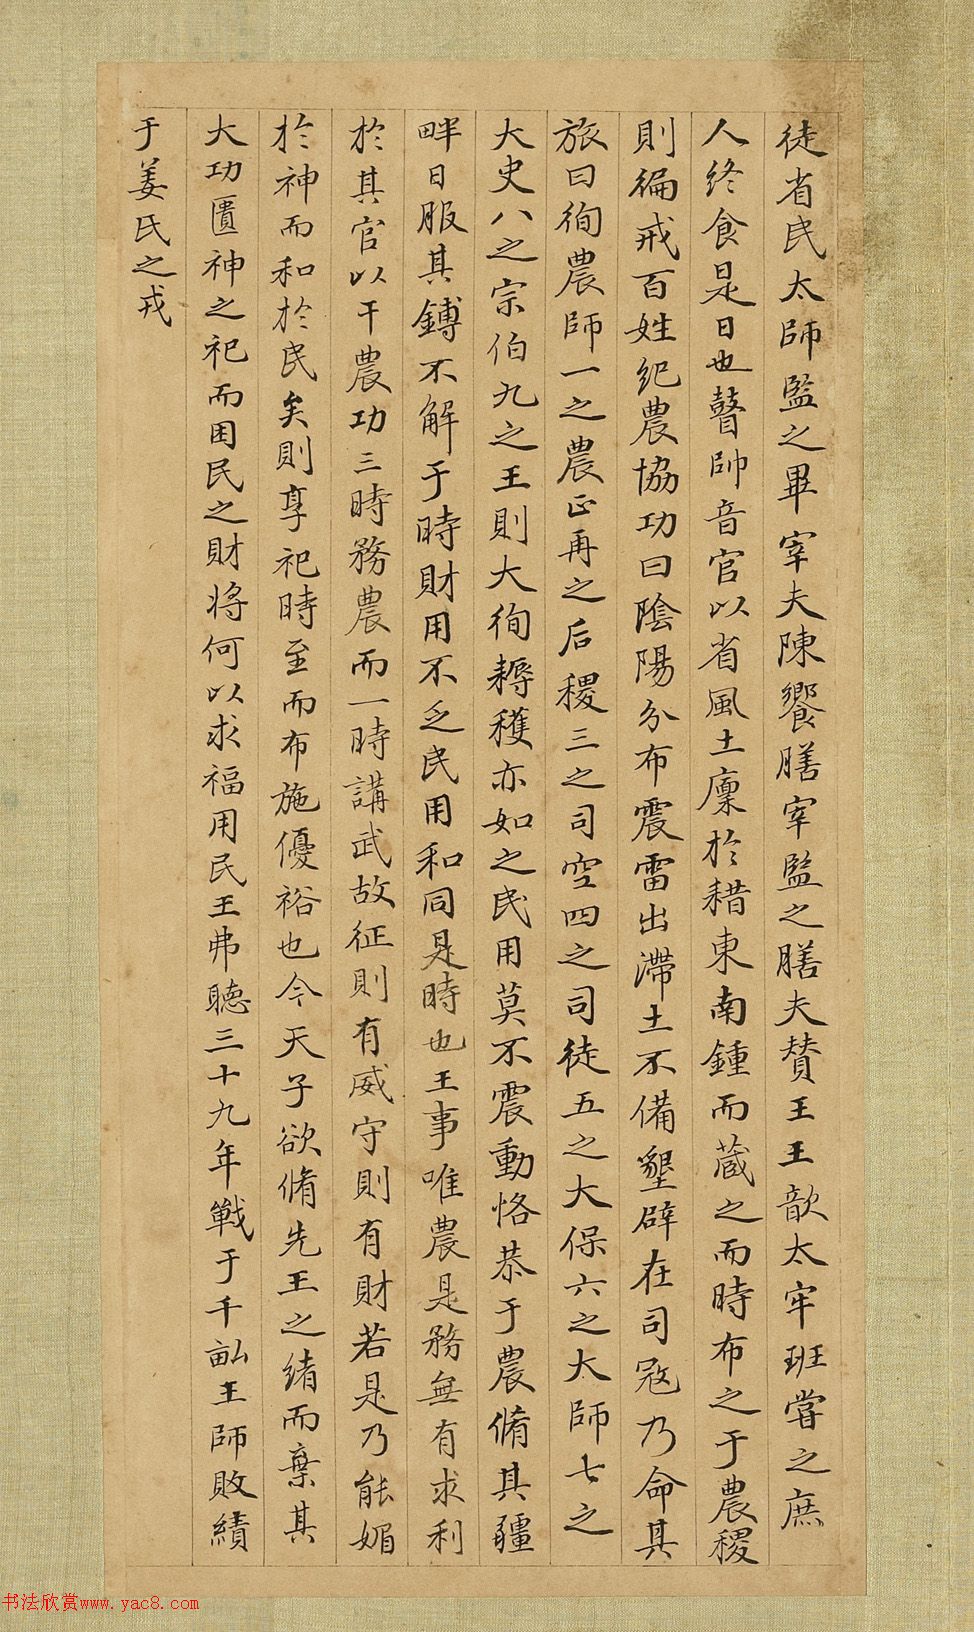 徒省民太師監之畢宰夫陳饗膳宰監之膳夫賛王王歆太牢班嘗之庶
人終食是日也瞽帥音官以省風土廩於耤東南鍾而蔵之而時布之于農稷
則徧戒百姓紀農協功曰陰陽分布震雷出滯土不備墾辟在司寇乃命其
旅曰徇農師一之農正再之后稷三之司空四之司徒五之大保六之太師七之
大史八之宗伯九之王則大徇耨穫亦如之民用莫不震動恪恭于農脩其疆
畔日服其鎛不解于時財用不乏民用和同是時也王事唯農是務無有求利
於其官以干農功三時務農而一時講武故征則有威守則有財若是乃能媚
於神而和於民矣則享祀時至而布施優裕也今天子欲脩先王之緒而棄其
大功匱神之祀而困民之財将何以求福用民王弗聽三十九年戰于千畝王師敗績
于姜氏之戎
书法欣赏www.yac8.com